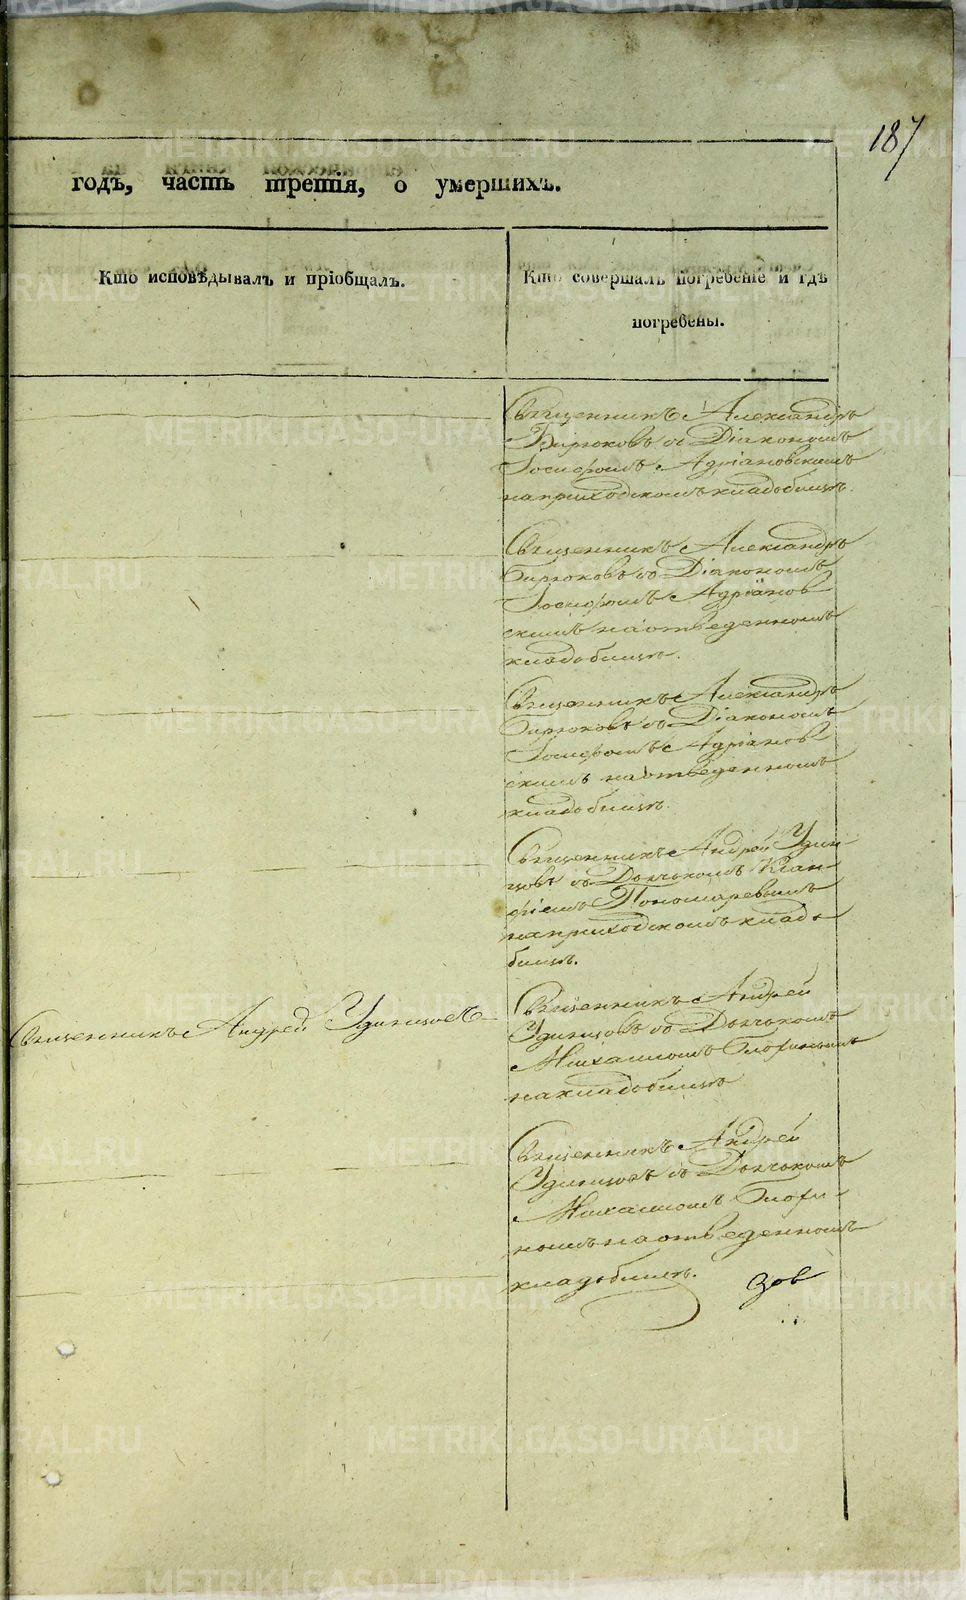 187
годъ, часть третія, о умершихъ.
Кто исповѣдывалъ и пріобщалъ.
Кто совершалъ погребеніе и гдѣ
погребены.
Священникъ Александръ
Бирюковъ съ Діакономъ
Іосифомъ Адріановскимъ
на приходскомъ кладбищѣ.
Священникъ Александръ
Бирюковъ съ Діакономъ
Іосифомъ Адріанов
скимъ на отведенномъ
кладбищѣ.
Священникъ Александръ
Бирюковъ съ Діакономъ
Іосифомъ Адріанов
скимъ на отведенномъ
кладбищѣ.
Священникъ Андрей Удин
цовъ съ Дьячкомъ
Пономаревымъ
на приходскомъ клад
бищѣ.
Священникъ Андрей Удинцовъ
Священникъ Андрей
Удинцовъ съ Дьячкомъ
Михаиломъ
на кладбищѣ
Священникъ Андрей
Удинцовъ съ Дьячкомъ
Михаиломъ
на отведенномъ
кладбищѣ.
METRIKI.GASO-URAL.RU